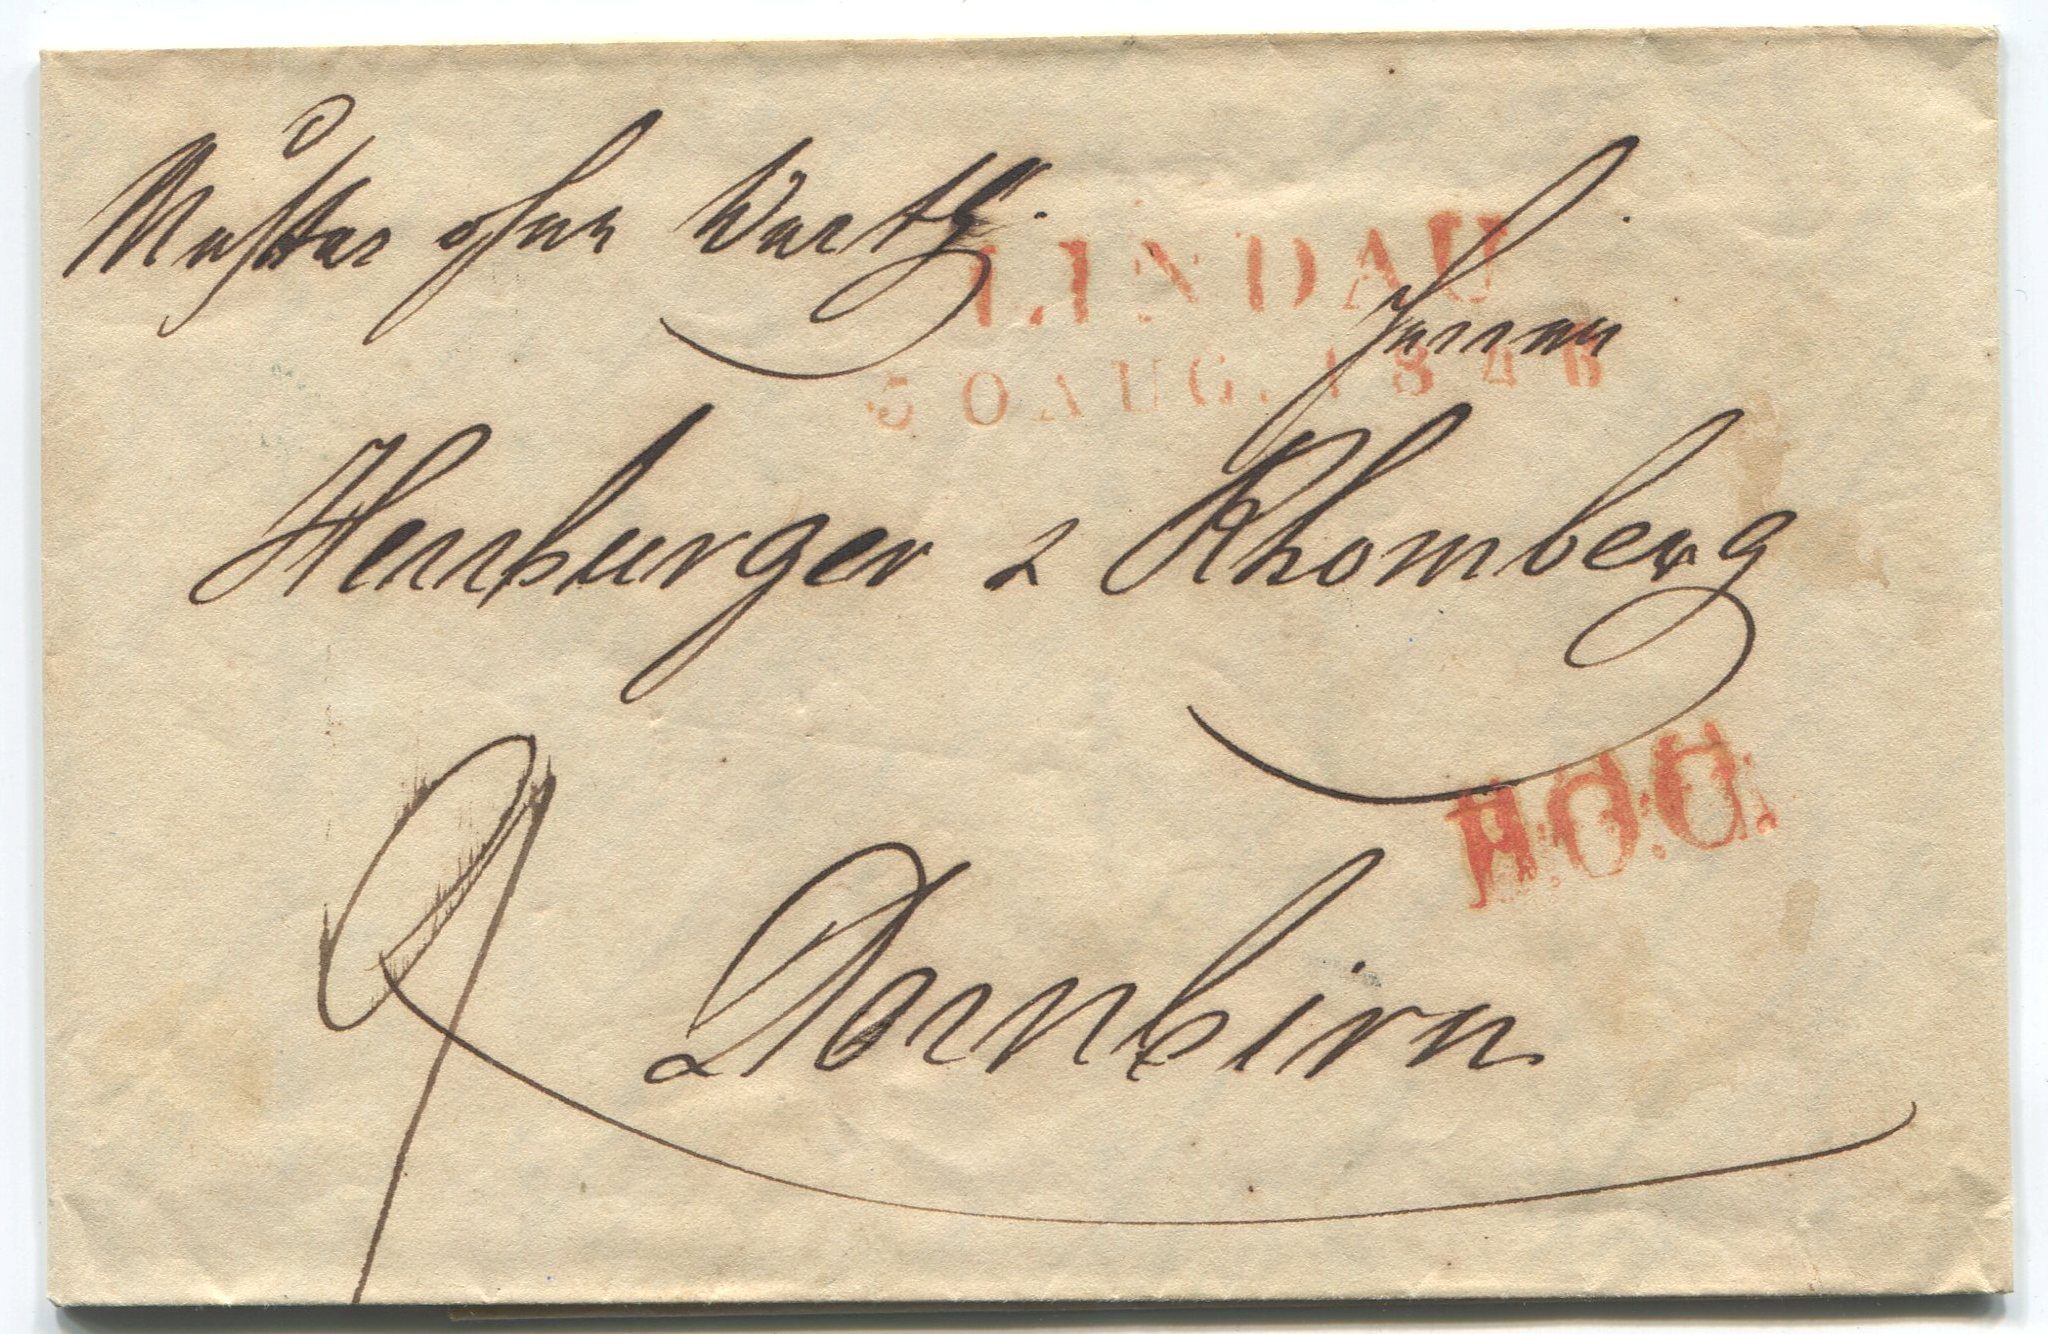 Muster ohne Werth.
LINDAU
30 AUG. 1846
Herren
Herrburger & Rhomberg
R.O.U.
9
Dornbirn